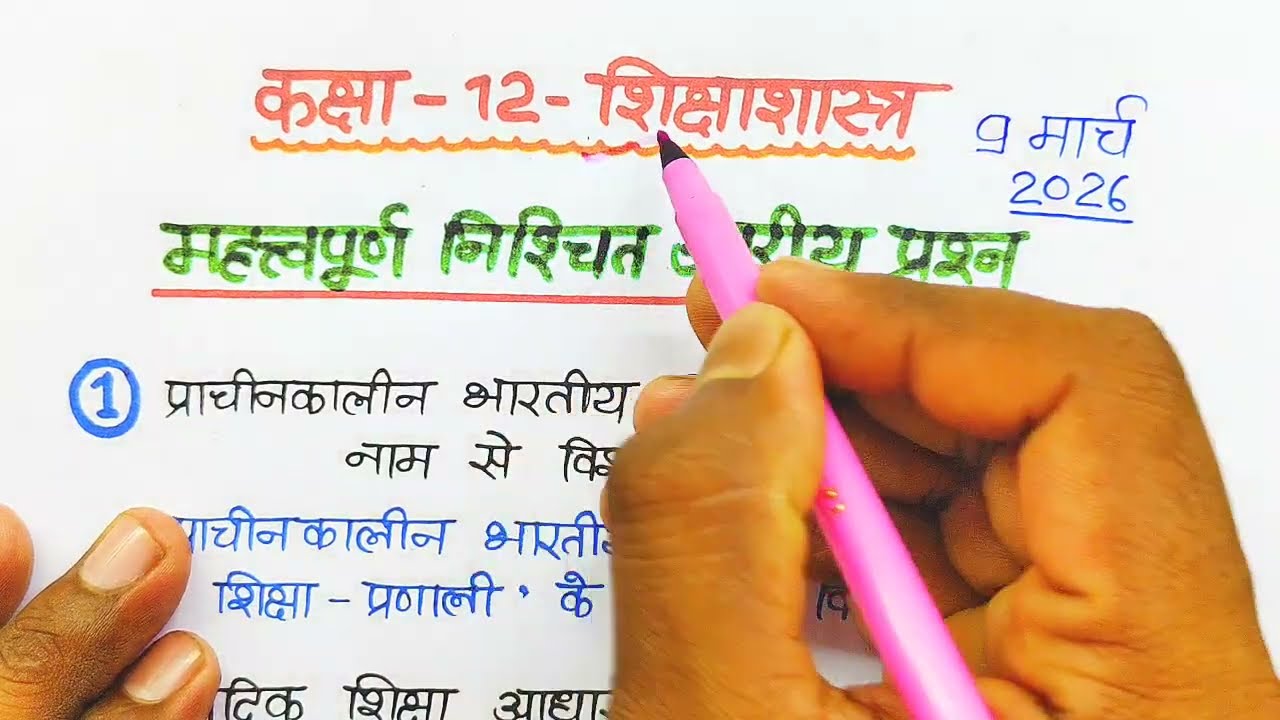 कक्षा - 12 - शिक्षाशास्त्र
9 मार्च
2026
महत्त्वपूर्ण निश्चित प्रश्न
1 प्राचीनकालीन भारतीय
नाम से
प्राचीनकालीन
शिक्षा - प्रणाली' के
शिक्षा